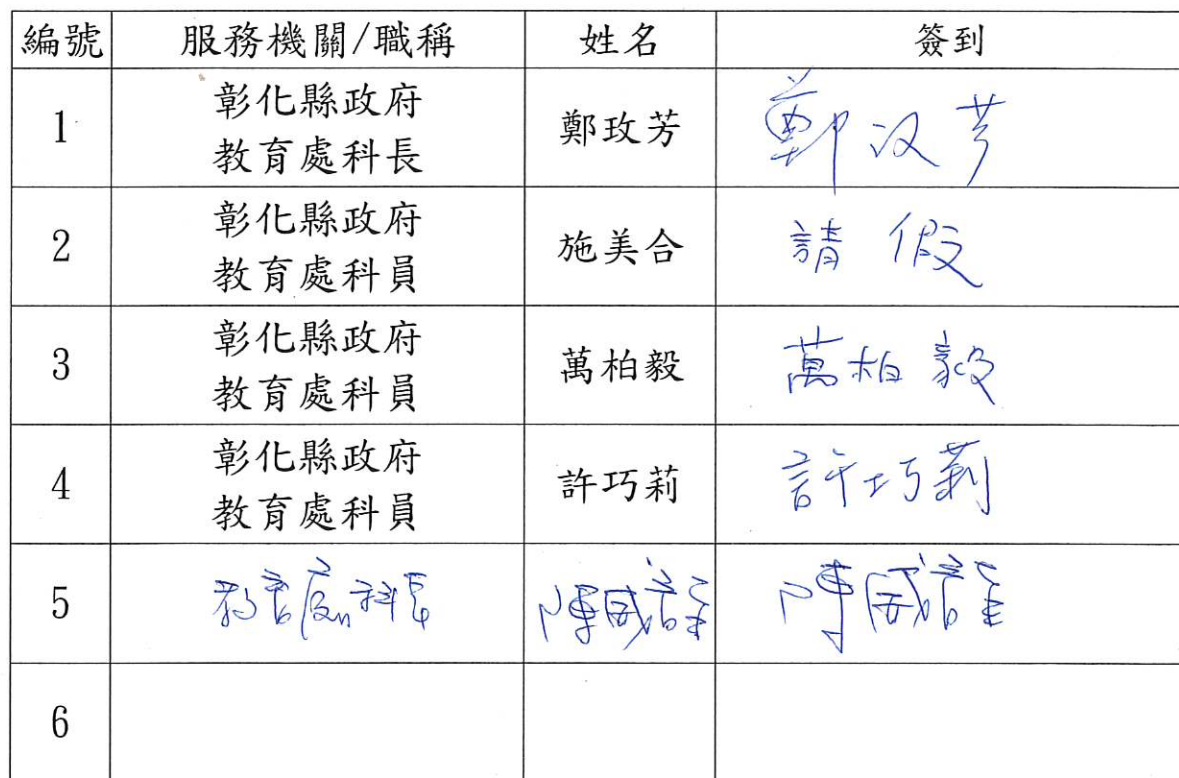 編號 服務機關/職稱 姓名 簽到
彰化縣政府
1 教育處科長 鄭玫芳 鄭玫芳
彰化縣政府
2 教育處科員 施美合 請假
彰化縣政府
3 教育處科員 萬柏毅 萬柏毅
彰化縣政府
4 教育處科員 許巧莉 許巧莉
5 教育處科長 陳威龍 陳威龍
6